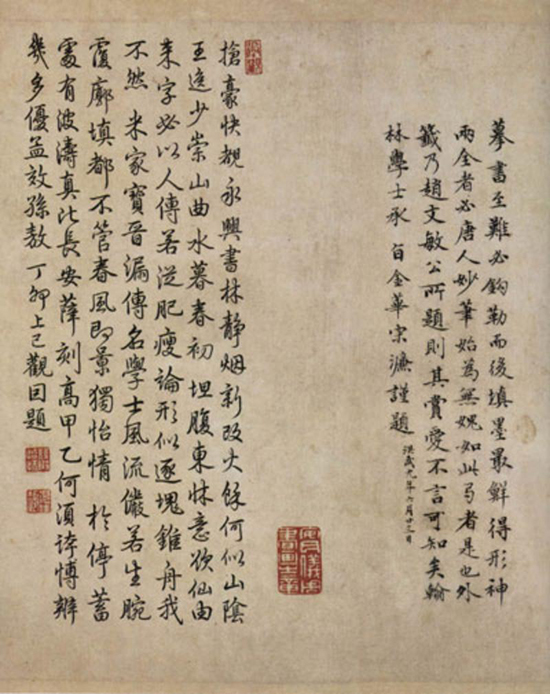 摹書至難必鈎勒而後填墨最鮮得形神
兩全者必唐人妙筆始為無媿如此弓者是也外
籤乃趙文敏公所題則其賞愛不言可知矣翰
林學士承旨金華宋濂謹題 洪武九年六月廿三日
安儀周書畫之章
搶豪快覩永興書林靜烟新改火餘何似山陰
王逸少崇山曲水暮春初 坦腹東牀意欲仙由
來字必以人傳若從肥瘦論形似逐塊錐舟我
不然 米家寶晉漏傳名學士風流儼若生腕
覆廓填都不管春風即景獨怡情 於停蓄
處有波濤真比長安薛刻高甲乙何須誇愽辯
幾多優孟效孫敖 丁卯上巳觀因題